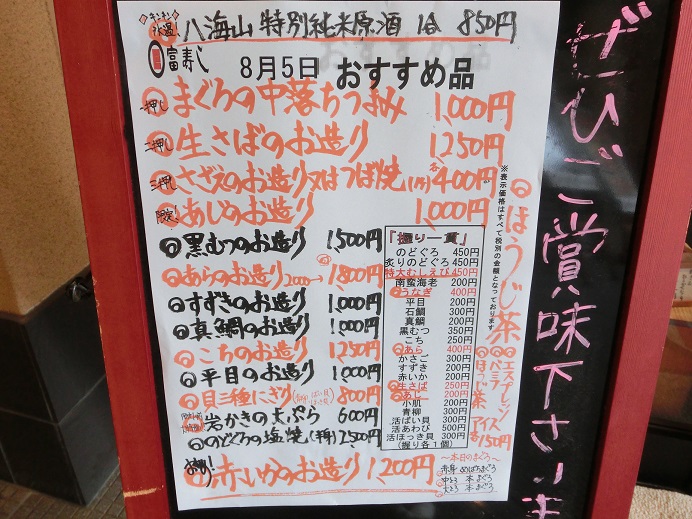 氷温 八海山 特別純米原酒 1合 850円
富寿し
8月5日 おすすめ品
一押し まぐろの中落ちつまみ 1,000円
二押し 生さばのお造り 1250円
三押し さざえのお造り又はつぼ焼(1ヶ)各400円
限定! あじのお造り 1,000円
黒むつのお造り 1500円
あらのお造り 2000→1,800円
すずきのお造り 1,000円
真鯛のお造り 1,000円
こちのお造り 1,250円
平目のお造り 1,000円
貝三種にぎり 800円
岩かきの天ぷら 600円
のどぐろの塩焼(半身)2500円
赤いかのお造り 1,200円
「握り一貫」
のどぐろ 450円
炙りのどぐろ 450円
特大むしえび 450円
南蛮海老 200円
うなぎ 400円
平目 200円
石鯛 300円
真鯛 200円
黒むつ 350円
こち 250円
あら 400円
かさご 300円
すずき 200円
赤いか 200円
生さば 250円
あじ 200円
小肌 200円
青柳 300円
活ばい貝 300円
活あわび 500円
活ほっき貝 300円
(握り各1個)
~本日のまぐろ~
赤身 めばちまぐろ
中とろ 本まぐろ
大とろ 本まぐろ
※表示価格はすべて税別の金額となっております
ほうじ茶
エスプレッソ
バニラ
ほうじ茶
アイス
各150円
ぜひご賞味下さいま